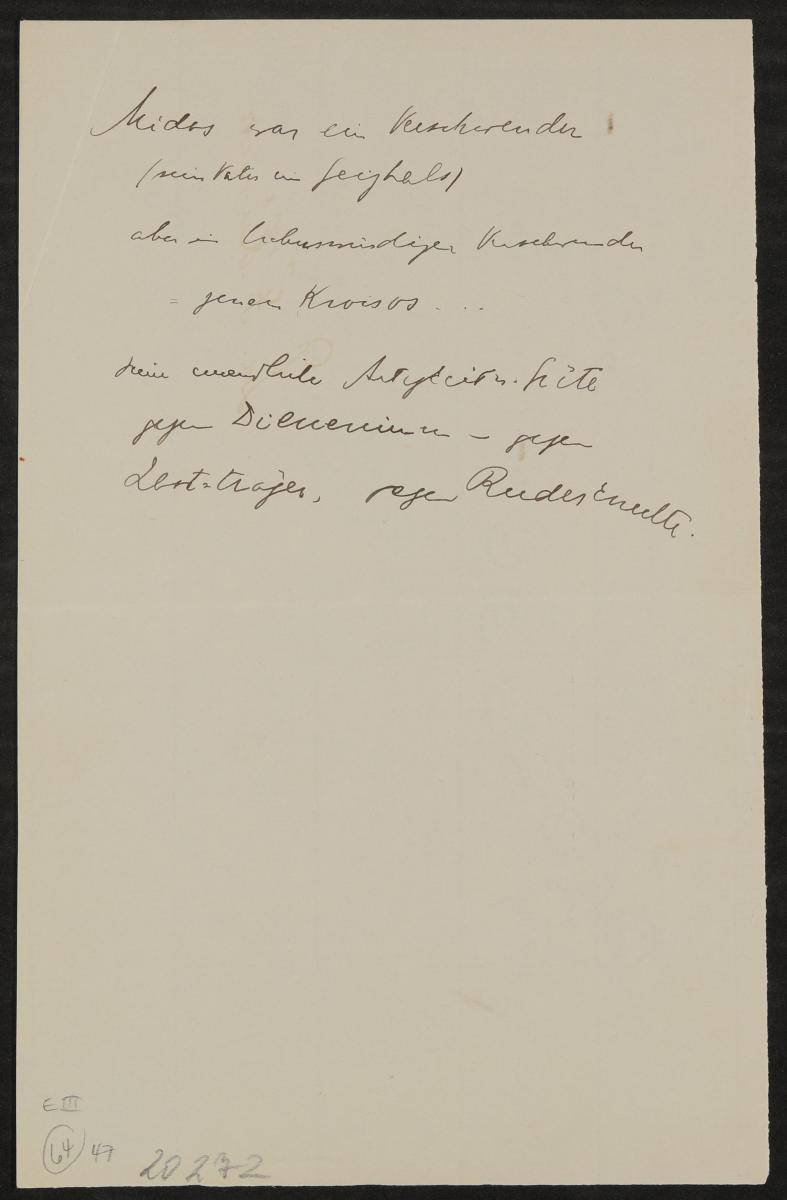 Midas war ein Verschwender
(sein Vater ein Geizhals)
aber ein liebenswürdiger Verschwender
= jenen Kroisos . . .
seine unendliche Artigkeit u. Güte
gegen Dienerinnen – gegen
Lastträger, gegen
E III
64 47
20272